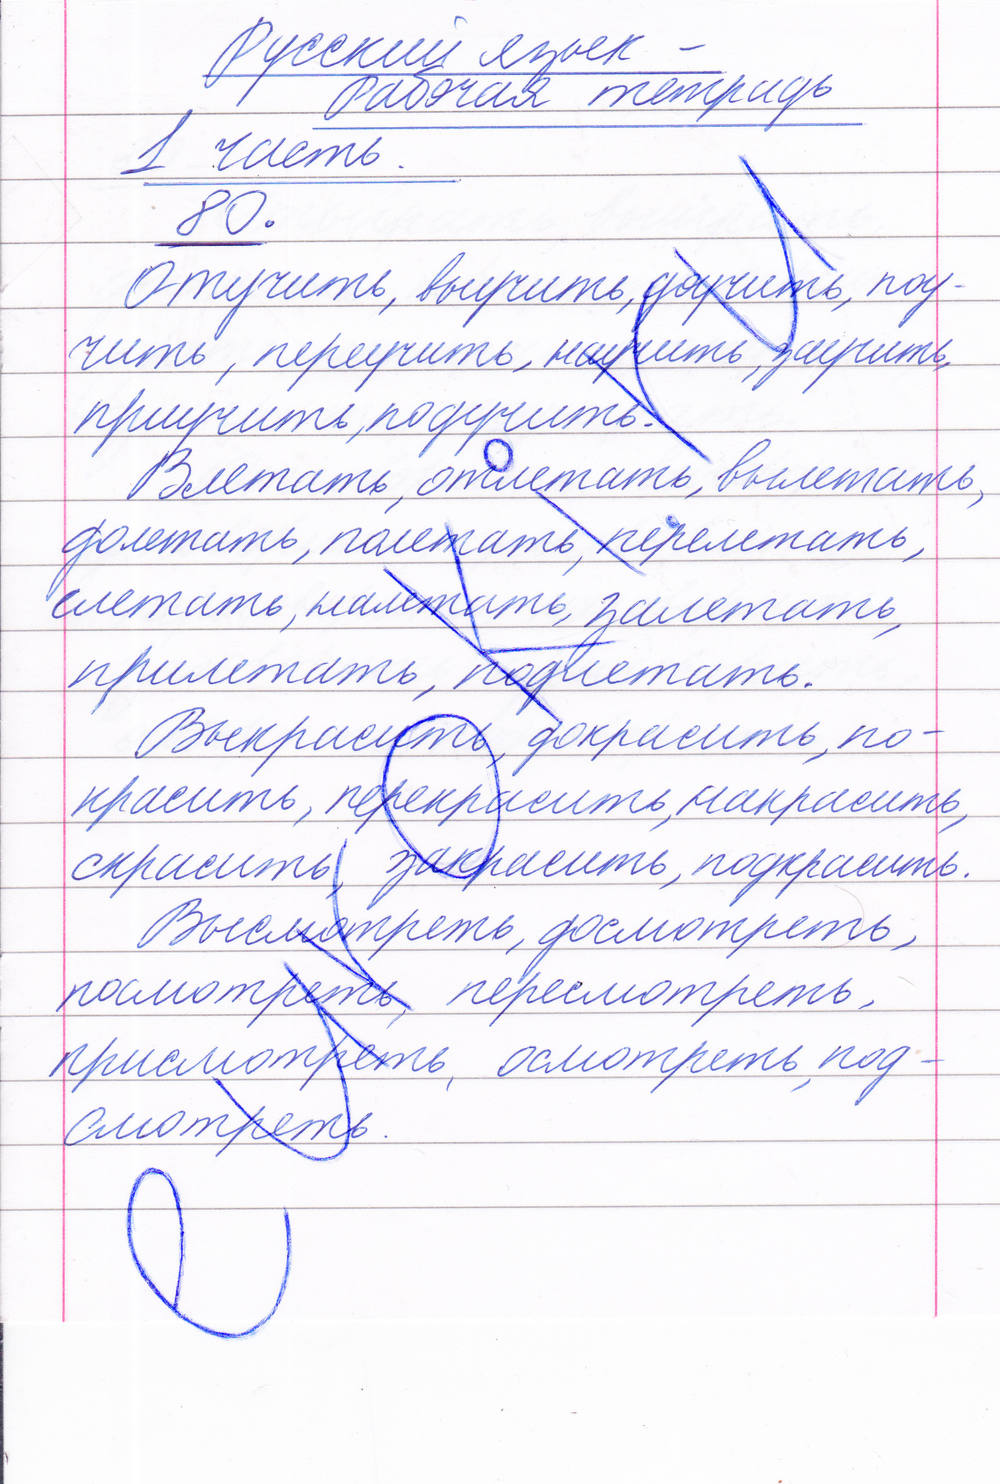 Русский язык -
Рабочая тетрадь
1 часть.
80.
Отучить, выучить, доучить, поу-
чить, переучить, научить, заучить,
приучить, подучить.
Влетать, отлетать, вылетать,
долетать, полетать, перелетать,
слетать, налетать, залетать,
прилетать, подлетать.
Выкрасить, докрасить, по-
красить, перекрасить, накрасить,
скрасить, закрасить, подкрасить.
Высмотреть, досмотреть,
посмотреть, пересмотреть,
присмотреть, осмотреть, под-
смотреть.